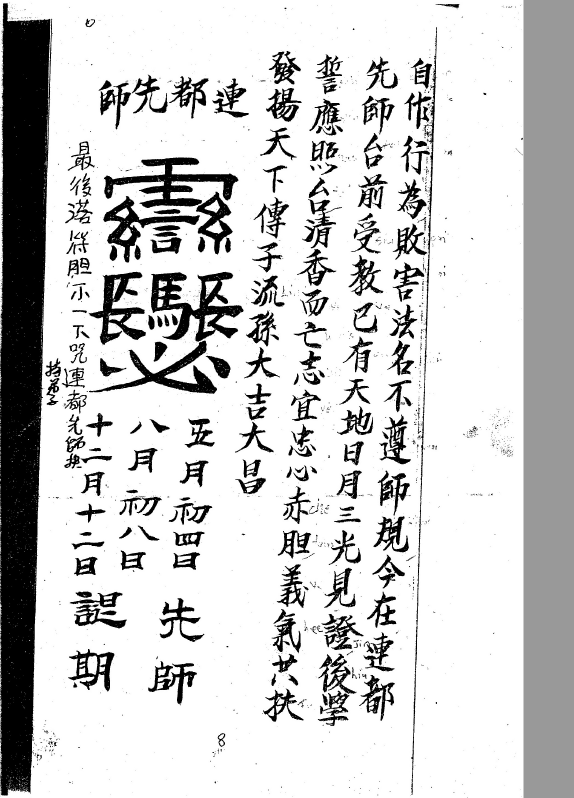 自作行為敗害法名不遵師規今在連都
先師台前受教已有天地日月三光見證後學
誓應照台清香而亡志宜忠心赤胆義氣共扶
發揚天下傳子流孫大吉大昌
連都先師
五月初四日
八月初八日
十二月十二日
先師
誕期
最後 符胆 一下咒連都先師扶
持弟子
8